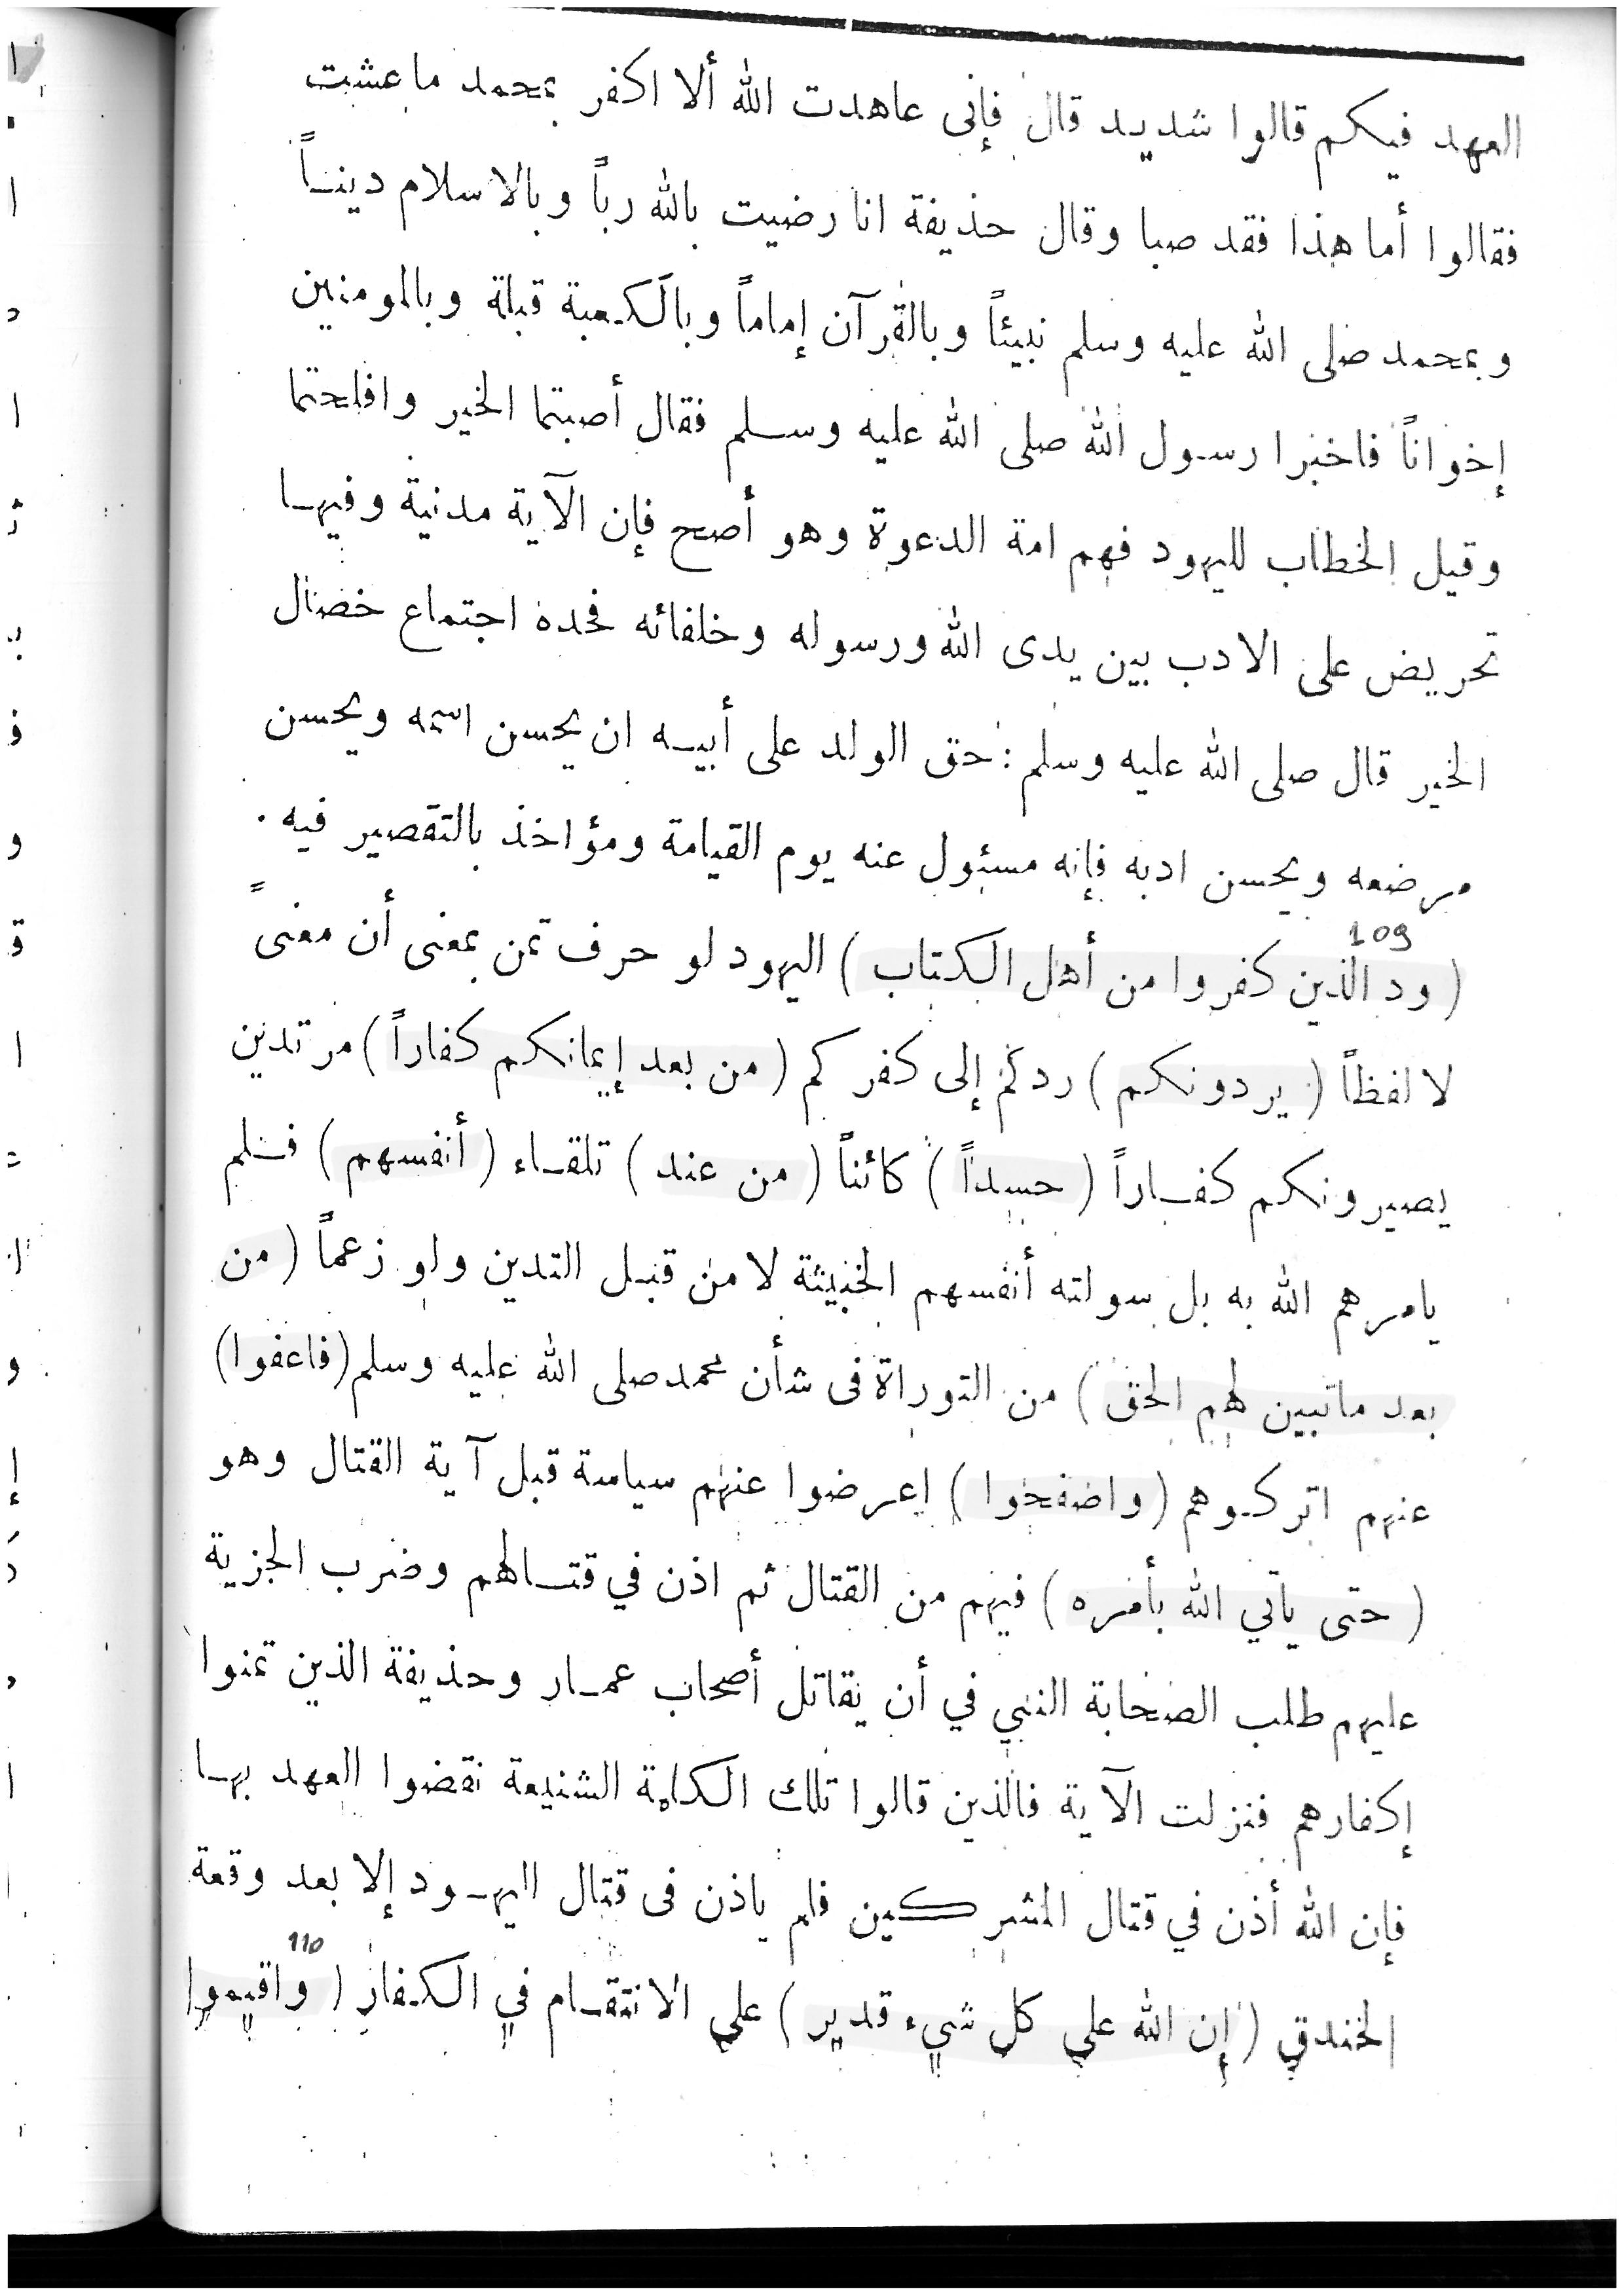 العهد فيكم قالوا شديد قال فإنى عاهدت الله ألا اكفر بمحمد ما عشت
فقالوا أما هذا فقد صبا وقال حذيفة انا رضيت بالله رباً وبالاسلام دينـاً
وبمحمد صلى الله عليه وسلم نبيئاً وبالقرآن إماماً وبالكعبة قبلة وبالمومنين
إخواناً فاخبرا رسول الله صلى الله عليه وسلم فقال أصبتما الخير وافلحتما
وقيل الخطاب لليهود فهم امة الدعوة وهو أصح فإن الآية مدنية وفيهـا
تحريض على الادب بين يدى الله ورسوله وخلفائه فحده اجتماع خصال
الخير قال صلى الله عليه وسلم : حق الولد على أبيـه ان يحسن اسمه ويحسن
مرضعه ويحسن ادبه فإنه مسئول عنه يوم القيامة ومؤاخذ بالتقصير فيه .
109
( ود الذين كفروا من أهل الكتاب ) اليهود لو حرف تمن بمعنى أن معنىً
لا لفظاً ( يردونكم ) ردكم إلى كفركم ( من بعد إيمانكم كفاراً ) مرتدين
يصيرونكم كفـاراً ( حسداً ) كائناً ( من عند ) تلقـاء ( أنفسهم ) فـلم
يامرهم الله به بل سولته أنفسهم الخبيثة لا من قبـل التدين ولو زعماً ( من
بعد ماتبين لهم الحق ) من التوراة فى شأن محمد صلى الله عليه وسلم (فاعفوا)
عنهم اتركـوهم ( واصفحوا ) اعرضوا عنهم سياسة قبل آية القتال وهو
( حتى يأتي الله بأمره ) فيهم من القتال ثم اذن في قتـالهم وضرب الجزية
عليهم طلب الصحابة النبي في أن يقاتل أصحاب عمـار وحذيفة الذين تمنوا
إكفارهم فنزلت الآية فالذين قالوا تلك الكلمة الشنيعة نقضوا العهد بهـا
فإن الله أذن في قتال المشركين فلم ياذن فى قتال اليهـود إلا بعد وقعة
110
الخندق ( إن الله على كل شيء قدير ) على الانتقـام في الكـفار ( واقيموا